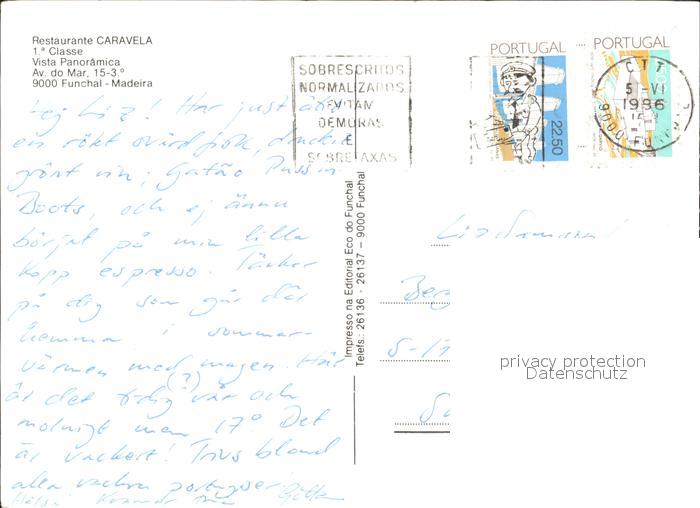 Restaurante CARAVELA
1.ª Classe
Vista Panorâmica
Av. do Mar, 15-3.º
9000 Funchal - Madeira
Hej Liz! Har just ätit
en rökt svärdfisk, druckit
grönt vin; Gatão Puss in
Boots, och ej ännu
börjat på min lilla
kopp espresso. Tänker
på dig som går där
hemma i sommar-
värmen med magen. Här
(?)
är det tidig vår och
molnigt men 17° Det
är vackert! Trivs bland
alla vackra portugiser!
Impresso na Editorial Eco do Funchal
Telefs.: 26136 - 26137 – 9000 Funchal
SOBRESCRITOS
NORMALIZADOS
EVITAM
DEMORAS
E
SOBRETAXAS
PORTUGAL
22.50
PORTUGAL
CTT
5 VI
1986
9000 FUNCHAL
Ber
S-1
privacy protection
Datenschutz